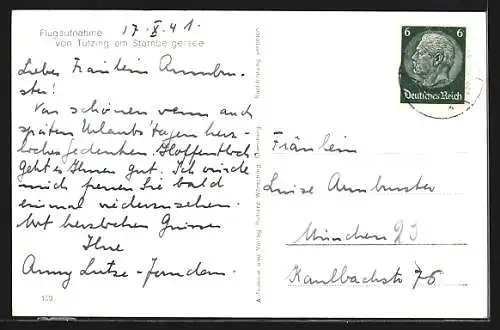 Flugaufnahme
von Tutzing am Starnbergersee
17. X. 41.
Liebes Fräulein Armbru-
ster!
Von schönen wenn auch
späten Urlaubstagen herz-
liches Gedenken. Hoffentlich
geht es Ihnen gut. Ich würde
mich freuen Sie bald
einmal wiederzusehen.
Mit herzlichen Grüssen
Ihre
Anny Lutze-
109
Nachdrehung verboten
Aufnahme und Verlag
6 6
Deutsches Reich
Fräulein
Luise Armbruster
München 23
Kaulbachstr 76